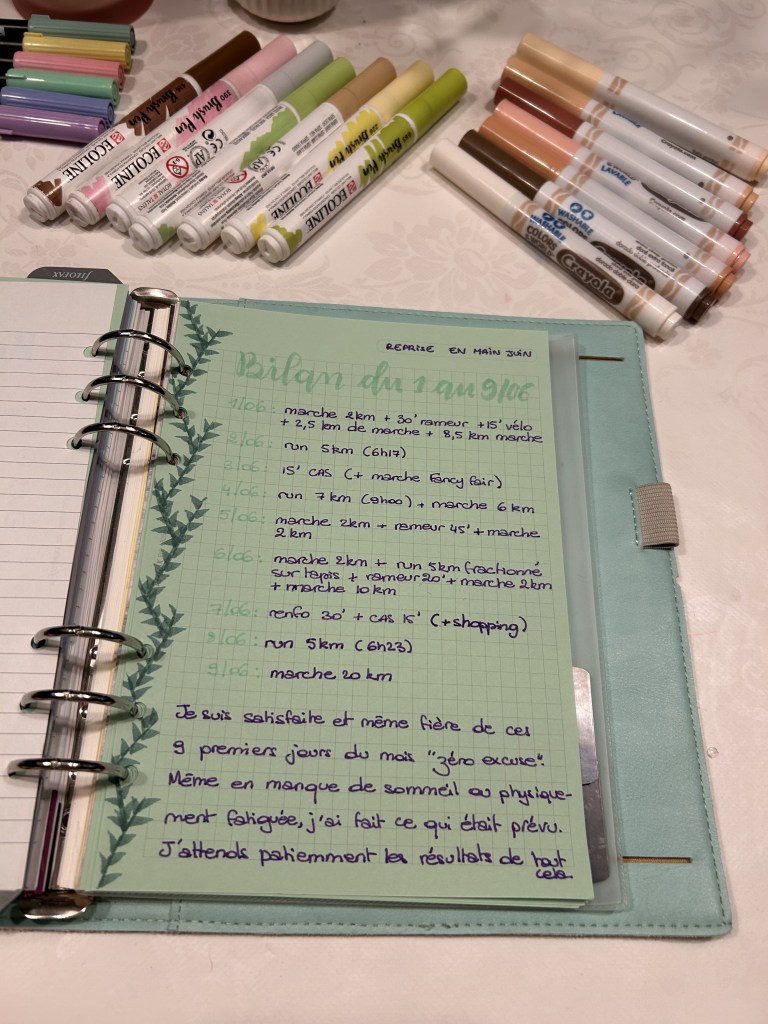 ECOLINE
Brush Pen
ECOLINE
Brush Pen
ECOLINE
Brush Pen
ECOLINE
Brush Pen
WASHABLE
COLORS
Crayola
filofax
REPRISE EN MAIN JUIN
Bilan du 1 au 9/06
1/06 : marche 2km + 30' rameur +15' vélo
+ 2,5 km de marche + 8,5 km marche
2/06 : run 5km (6h17)
3/06 : 15' CAS (+ marche Fancy fair)
4/06 : run 7 km (9h00) + marche 6 km
5/06 : marche 2km + rameur 45' + marche
2km
6/06 : marche 2km + run 5km fractionné
sur tapis + rameur 20' + marche 2km
+ marche 10km
7/06 : renfo 30' + CAS 15' (+shopping)
8/06 : run 5km (6h23)
9/06 : marche 20 km
Je suis satisfaite et même fière de ces
9 premiers jours du mois "zéro excuse".
Même en manque de sommeil ou physique-
ment fatiguée, j'ai fait ce qui était prévu.
J'attends patiemment les résultats de tout
cela.